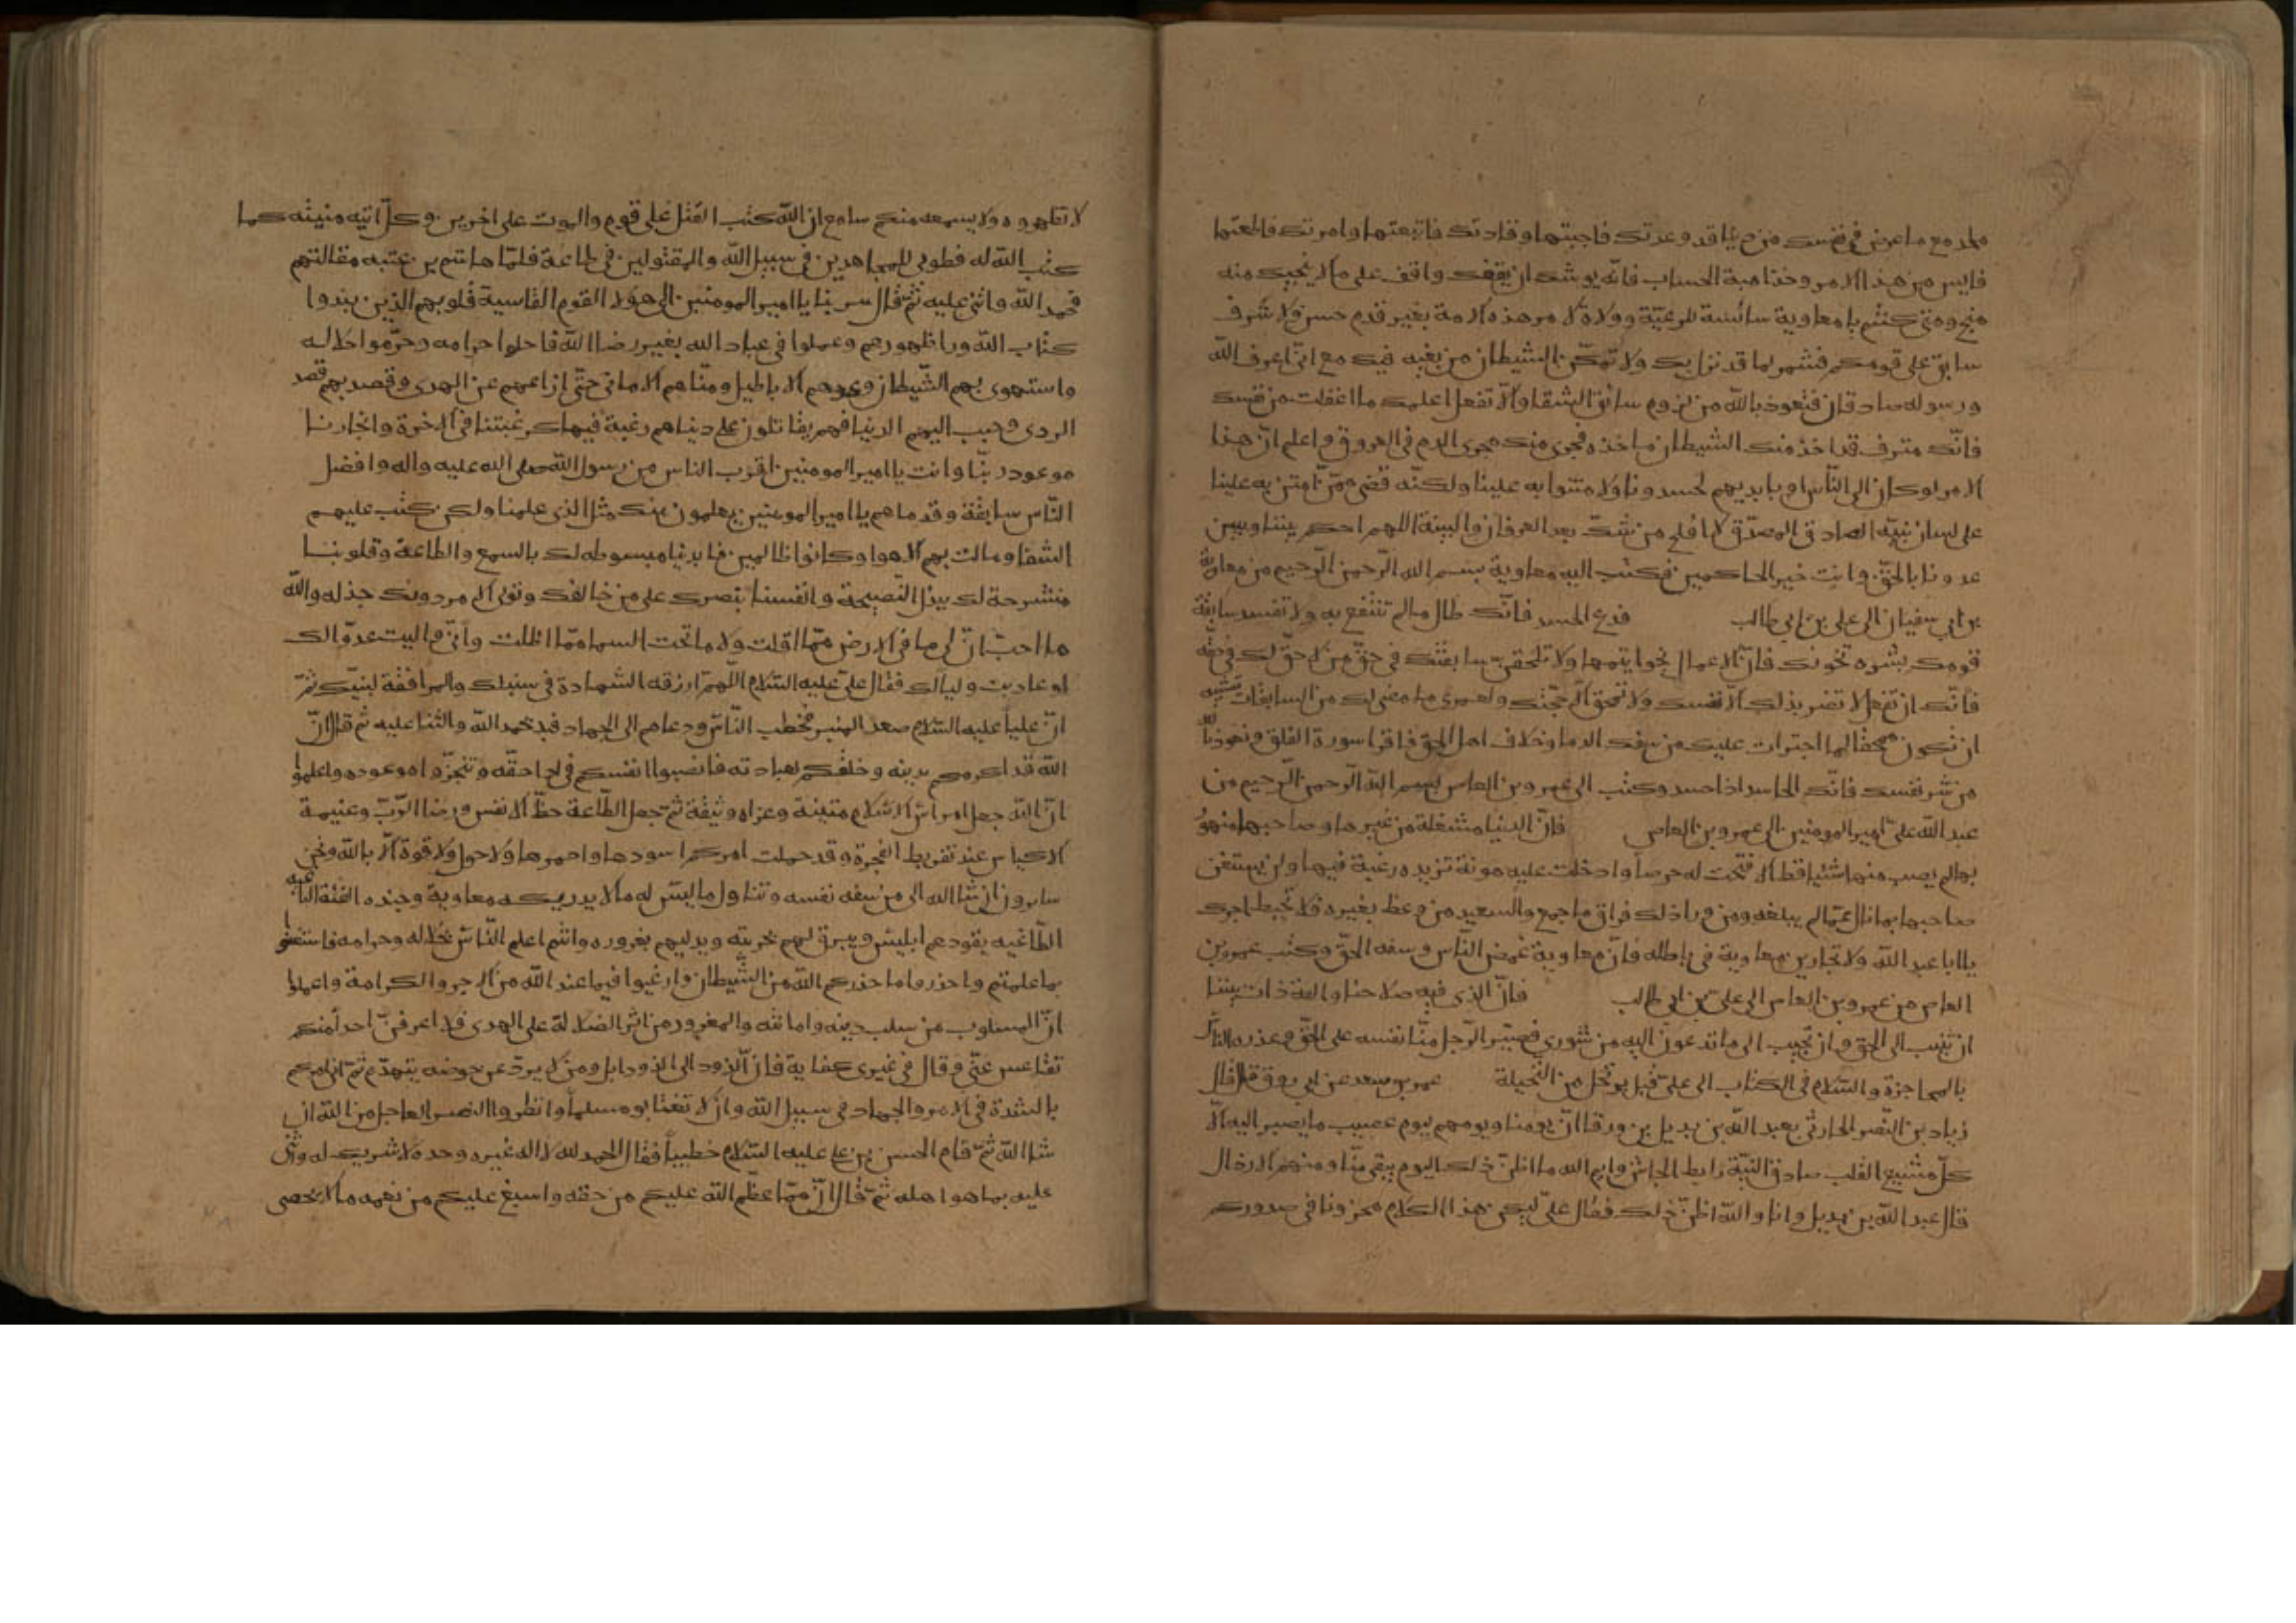 ملحد مع ما عرض في نفسك من دنيا قد دعتك فاجبتها وقادتك فاتبعتها وامرتك فاطعتها
فايس من هذا الامر وخذ اهبة الحساب فانه يوشك ان يقفك واقف على ما لا يجيك منه
مجن ومتى كنتم يا معاوية سائسة للرعيّة وولاة لامر هذه الامة بغير قدم حسن ولا شرف
سابق على قومكم فشمر لما قد نزل بك ولا تمكّن الشيطان من بغيه فيك مع انى اعرف الله
ورسوله صادقان فنعوذ بالله من لزوم سابق الشقا والّا تفعل اعلمك ما اغفلت من نفسك
فانّك مترف قد اخذ منك الشيطان ماخذه فجرى منك مجرى الدم فى العروق واعلم انّ هذا
الامر لو كان الى النّاس او بايديهم لحسدونا ولامتنوا به علينا ولكنّه قضى ممّن امتن به علينا
على لسان نبيّه الصادق المصدّق لا افلح من شكّ بعد العرفان والبينة اللهم احكم بيننا وبين
عدونا بالحقّ وانت خير الحاكمين فكتب اليه معاوية بسم الله الرّحمن الرّحيم من معاوية
بن ابي سفيان الى على بن ابي طالب فدع الحسد فانّك طال ما لم تنتفع به ولا تفسد سابقة
قومك بشره نخوتك فانّ الاعمال بخواتيمها ولا تمحق سابقتك فى حقّ من لا حقّ لك فى حقّه
فانّك ان تفعل لا تضر بذلك الّا نفسك ولا تمحق الّا حجّتك ولعمرى ما مضى لك من السابقات لشبيه
ان تكون ممحقا لما اجترات عليك من سفك الدما وخلاف اهل الحق فاقرا سورة الفلق وتعوذ بالله
من شر نفسك فانّك الحاسد اذا حسد وكتب الى عمرو بن العاص بسم الله الرّحمن الرّحيم من
عبد الله علىّ امير المومنين الى عمرو بن العاص فانّ الدنيا مشغلة من غيرها وصاحبها منهوم
بها لم يصب منها شئيا قط الّا فتحت له حرصا وادخلت عليه مونة تزيده رغبة فيها ولن يستغنى
صاحبها بما نال عمّا لم يبلغه ومن ورا ذلك فراق ما جمع والسعيد من وعظ بغيره فلا تحبط اجرك
يا ابا عبد الله ولا تجارين معاوية فى باطله فانّ معاوية غمض النّاس وسفه الحقّ وكتب عمرو بن
العاص من عمرو بن العاص الى علىّ بن ابي طالب فانّ الذى فيه صلاحنا والفة ذات بيننا
ان تنيب الى الحق وان تجيب الى ما تدعون اليه من شورى فصيّر الرّجل منّا نفسه على الحقّ وعذره النّاس
بالمحاجزة والسّلام فجا الكتاب الى علىّ قبل يرتحل من النّخيلة عمر بن سعد عن ابي روق قال قال
زياد بن النّضر الحارثى لعبد الله بن بديل بن ورقا انّ يومنا ويومهم ليوم عصيب ما يصبر اليه الّا
كلّ مشيع القلب صادق النيّة رابط الجاش وايم الله ما اظنّ ذلك اليوم يبقى منّا ومنهم الا رذال
قال عبد الله بن بديل وانا والله اظنّ ذلك فقال علىّ ليكن هذا الكلام مخزونا فى صدوركم
لا تظهروه ولا يسمعه منكم سامع ان الله كتب القتل على قوم والموت على اخرين وكلّ اتيه منيته كما
كتب الله له فطوبى للمجاهدين فى سبيل الله والمقتولين فى طاعة فلمّا هاشم بن عتبه مقالتهم
فحمد الله واثنى عليه ثمّ قال سر بنا يا امير المومنين الى هولا القوم القاسية قلوبهم الذين نبذوا
كتاب الله ورا ظهورهم وعملوا فى عباد الله بغير رضا الله فاحلوا حرامه وحرّموا حلاله
واستهوى بهم الشّيطان ووعدهم الاباطيل ومنّاهم الامانى حتّى ازاغهم عن الهدى وقصد بهم قصد
الردى وحبب اليهم الدنيا فهم يقاتلون على دنياهم رغبة فيها كرغبتنا فى الاخرة وانجازنا
موعود ربّنا وانت يا امير المومنين اقرب الناس من رسول الله صلى الله عليه واله وافضل
النّاس سابقة وقدما هم يا امير المومنين يعلمون منك مثل الذى علمنا ولكن كتب عليهم
الشقا ومالت بهم الاهوا وكانوا ظالمين فايدينا مبسوطه لك بالسمع والطاعة وقلوبنا
منشرحة لك ببذل النّصيحة وانفسنا تنصرك على من خالفك وتولى الامر دونك جذله والله
ما احبّ انّ لى ما فى الارض ممّا اقلت ولا ما تحت السما ممّا اظلت وانّى واليت عدوّا لك
او عاديت وليا لك فقال علىّ عليه السّلام اللّهمّ ارزقه الشّهادة فى سبيلك والمرافقة لنبيّك ثمّ
انّ عليّا عليه السّلام صعد المنبر فخطب النّاس ودعاهم الى الجهاد فبد بحمد الله والثنا عليه ثم قال انّ
الله قد اكرمكم بدينه وخلقكم لعبادته فانصبوا انفسكم فى ادا حقّه وتنجزّوا موعوده واعلموا
انّ الله جعل امراس الاسلام متينة وعراه وثيقة ثمّ جعل الطّاعة حظّ الانفس ورضا الرّبّ وغنيمة
الاكياس عند تفريط الفجرة وقد حملت امركم اسودها واحمرها ولا حول ولا قوة الّا بالله ونحن
سايرون ان شا الله الى من سفه نفسه وتناول ما ليس له ما لا يدريكه معاوية وجنده الفئة الباغيه
الطّاغيه يقودهم ابليس ويبرق لهم ببريقه ويدليهم بغروره وانتم اعلم النّاس بحلاله وحرامه فاستغنوا
بما علمتم واحذروا ما حذركم الله من الشّيطان وارغبوا فيما عند الله من الاجر والكرامة واعلموا
انّ المسلوب من سلب دينه وامانته والمغرور من اثر الضلالة على الهدى فلا اعرفنّ احداً منكم
تقاعس عنّى وقال فى غيرى كفاية فانّ الذود الى الذود ابل ومن لا يردّ عن حوضه يتهدّم ثمّ انى امركم
بالشدة فى الامر والجهاد فى سبيل الله وان لا تغتابو مسلما وانظروا النصر العاجل من الله ان
شا الله ثمّ قام الحسن بن على عليه السّلام خطيباً فقال الحمد لله لا اله غيره وحده لا شريك له واثنى
عليه بما هو اهله ثمّ قال انّ ممّا عظّم الله عليكم من حقه واسبغ عليكم من نعمه ما لا يحصى